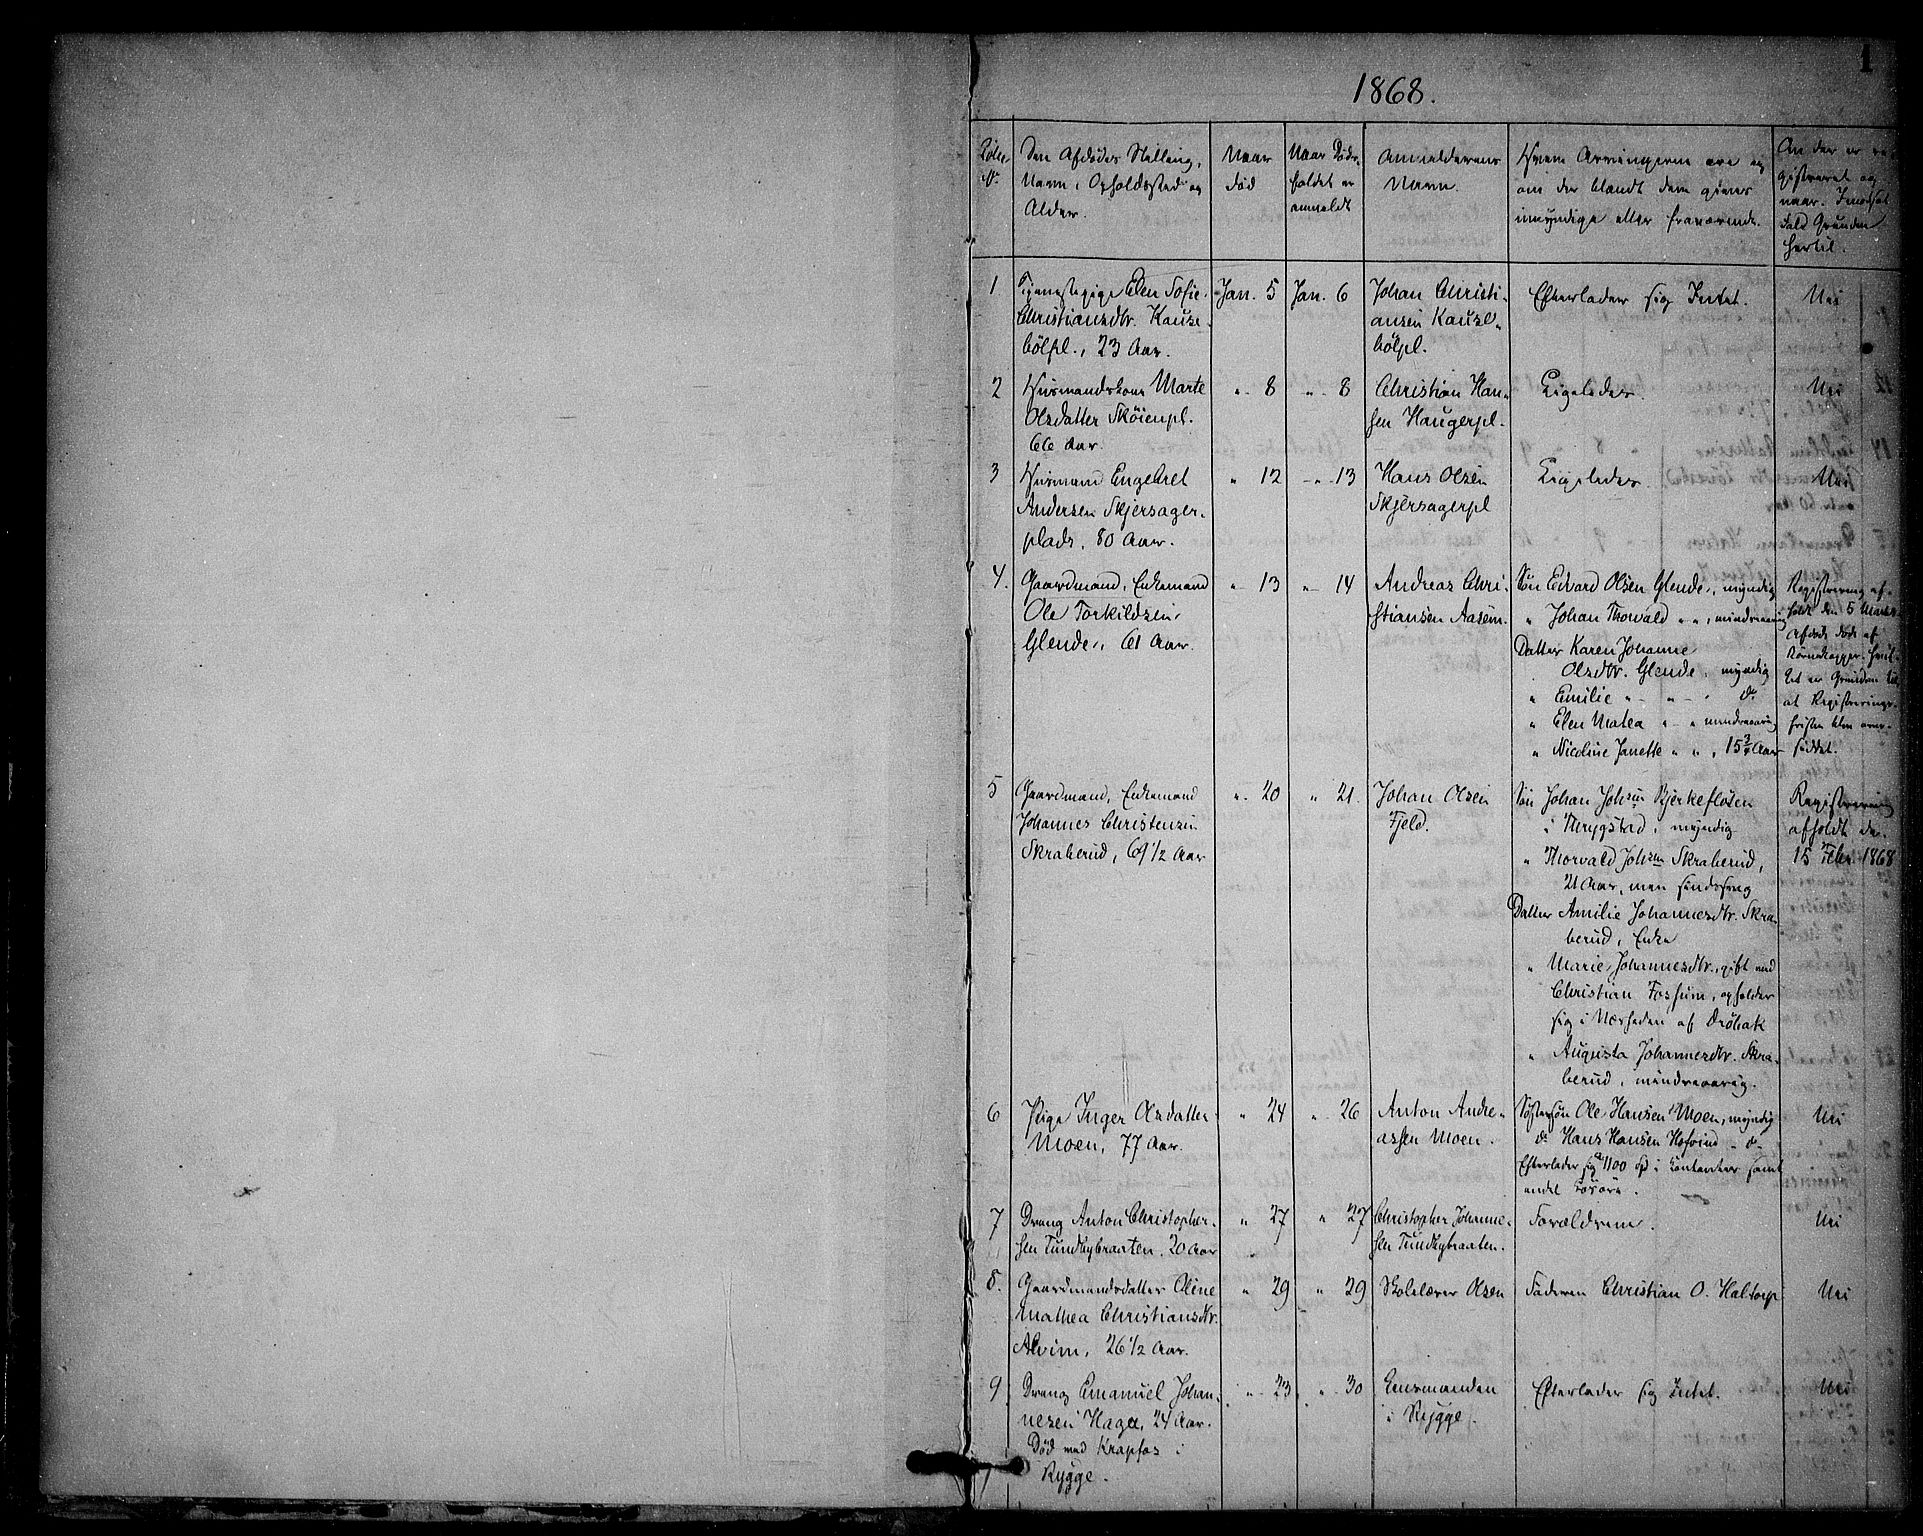 1
1868.
Løbe
N.
Den Afdødes Stilling,
Navn, Opholdssted og
Alder.
Naar
død
Naar Døds-
faldet er
anmeldt
Anmelderens
Navn.
Hvem Arvingerne ere og
om der blandt dem gives
umyndige eller fraværende.
Om der er re-
gistreret og
naar. I modsat
Fald Grunden
hertil.
1
Tjenestepige Elen Sofie
Christiansdtr. Kause-
bölpl., 23 Aar.
Jan. 5
Jan. 6
Johan Christi-
ansen Kause-
bölpl.
Efterlader sig Intet.
Nei
2
Husmandskone Marte
Olsdatter Sköienpl.
66 Aar.
" 8
" 8
Christian Han-
sen Haugerpl.
Ligeledes.
Nei
3
Husmand Engebret
Andersen Skjersager-
plads, 80 Aar.
" 12
" 13
Hans Olsen
Skjersagerpl
Ligeledes.
Nei
4.
Gaardmand, Enkemand
Ole Torkildsen
Glende, 61 Aar.
" 13
" 14
Andreas Chri-
stiansen Aasen.
Søn Edvard Olsen Glende, myndig
" Johan Thorvald " ", mindreaarig
Datter Karen Johanne
Olsdtr. Glende, myndig
" Emilie " - " - " do
" Elen Matea " - " mindreaarig
" Nicoline Janette " ", 15 3/4 Aar
Registrering af-
holdt den 5 Marts
Afdøde døde af
Børnekopper, hvil-
ket er Grunden til
at Registrerings-
fristen blev over-
siddet.
5
Gaardmand, Enkemand
Johannes Christensen
Skraberud, 69 1/2 Aar
" 20
" 21.
Johan Olsen
Fjeld.
Søn Johan Johsen Bjerkefloten
i Thrygstad, myndig
" Thorvald Johsen Skraberud,
21 Aar, men sindssvag
Datter Amilie Johannesdtr. Skra-
berud, Enke
" Marie Johannesdtr., gift med
Christian Fossum, opholder
sig i Nærheden af Drøbak
" Augusta Johannesdtr. Skra-
berud, mindreaarig.
Registrering
afholdt den
15 Febr. 1868
6
Pige Inger Olsdatter
Moen, 77 Aar.
" 24
" 26
Anton Andre-
assen Moen.
Søstersøn Ole Hansen Moen, myndig
do Hans Hansen Hofvind - do -
Efterlader sig 1100 Spd i Kontanter samt
endel Løsøre.
Nei
7
Dreng Anton Christopher-
sen Tundbybraaten. 20 Aar
" 27
" 27
Christopher Johanne-
sen Tundbybraaten.
Forældrene.
Nei
8.
Gaardmandsdatter Oline
Mathea Christiansdtr.
Alvim, 26 1/2 Aar.
" 29
" 29
Skolelærer Olsen
Faderen Christian O. Haltorp
Nei
9
Dreng Emanuel Johan-
nesen Haga, 24 Aar.
Død ved Krapfos i
Rygge.
" 23
" 30
Lensmanden
i Rygge.
Efterlader sig Intet.
Nei